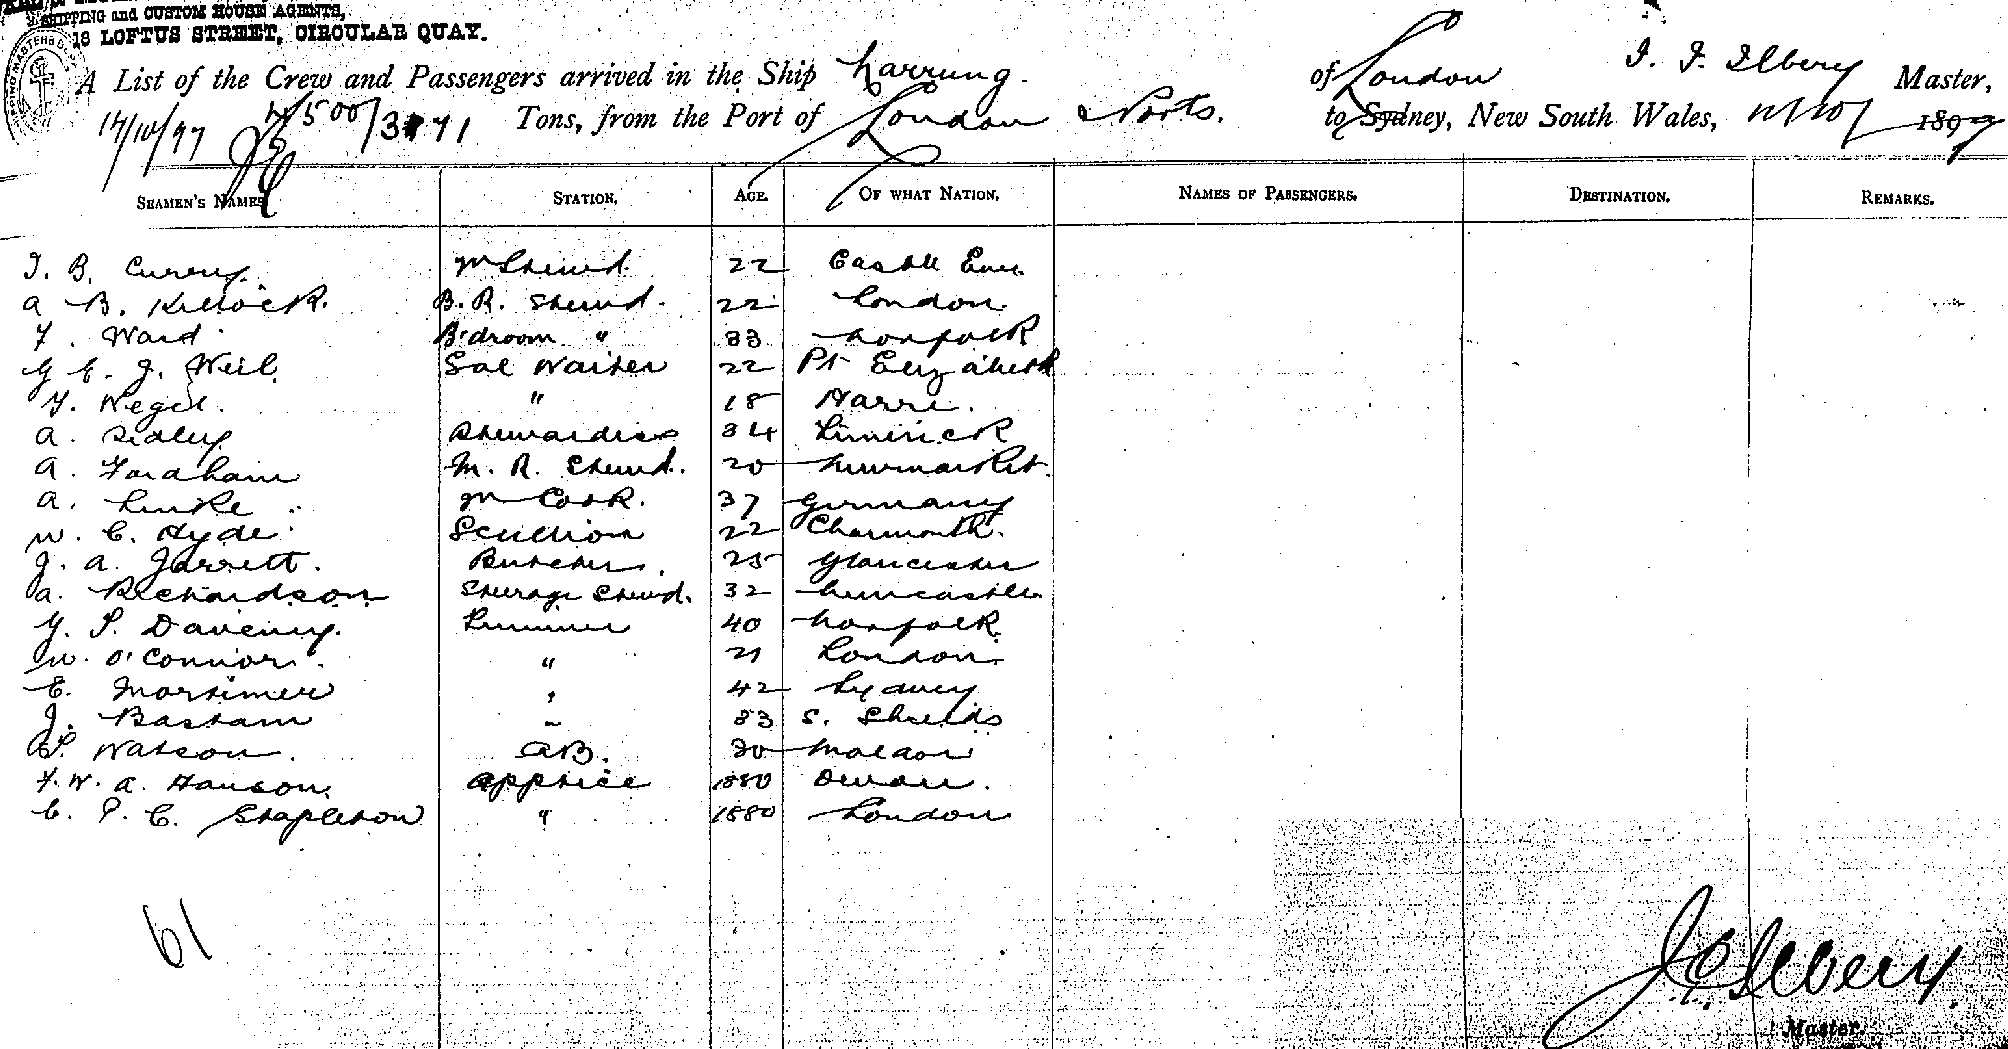 SHIPPING and CUSTOM HOUSE AGENTS,
18 LOFTUS STREET, CIRCULAR QUAY.
A List of the Crew and Passengers arrived in the Ship Narrung. of London J. F. Ilbery Master,
Tons, from the Port of London & Ports. to Sydney, New South Wales, 1897
SEAMEN'S NAMES STATION. AGE. OF WHAT NATION. NAMES OF PASSENGERS. DESTINATION. REMARKS.
J. B. Curry. 22 Castle
A B. Killock. B.R. Stewd. 22 London.
F. Ward B'droom " 33 Norfolk
G E. J. Weil. Sal Waiter 22 Pt Elizabeth
" 18
A. Sidley Stewardess 34 Limerick
A. Fordham M. R. Stewd. 20 Newmarket
A. Linke M Cook. 37 Germany
W. C. Hyde Scullion 22 Charmouth.
J. A. Jarrett. Butcher. 25 Gloucester
A. Richardson Steerage Stewd. 32 Newcastle
G. S. Daveney. Trimmer 40 Norfolk
W. O'Connor. " 21 London
E. Mortimer " 42 Sydney
J. Bastam " 33 S. Shields
Watson. AB. 20 Maldon
F. W. A. Hanson. Apptice 1880
C. P. C. Stapleton " 1880 London
61
J. F. Ilbery.
Master.